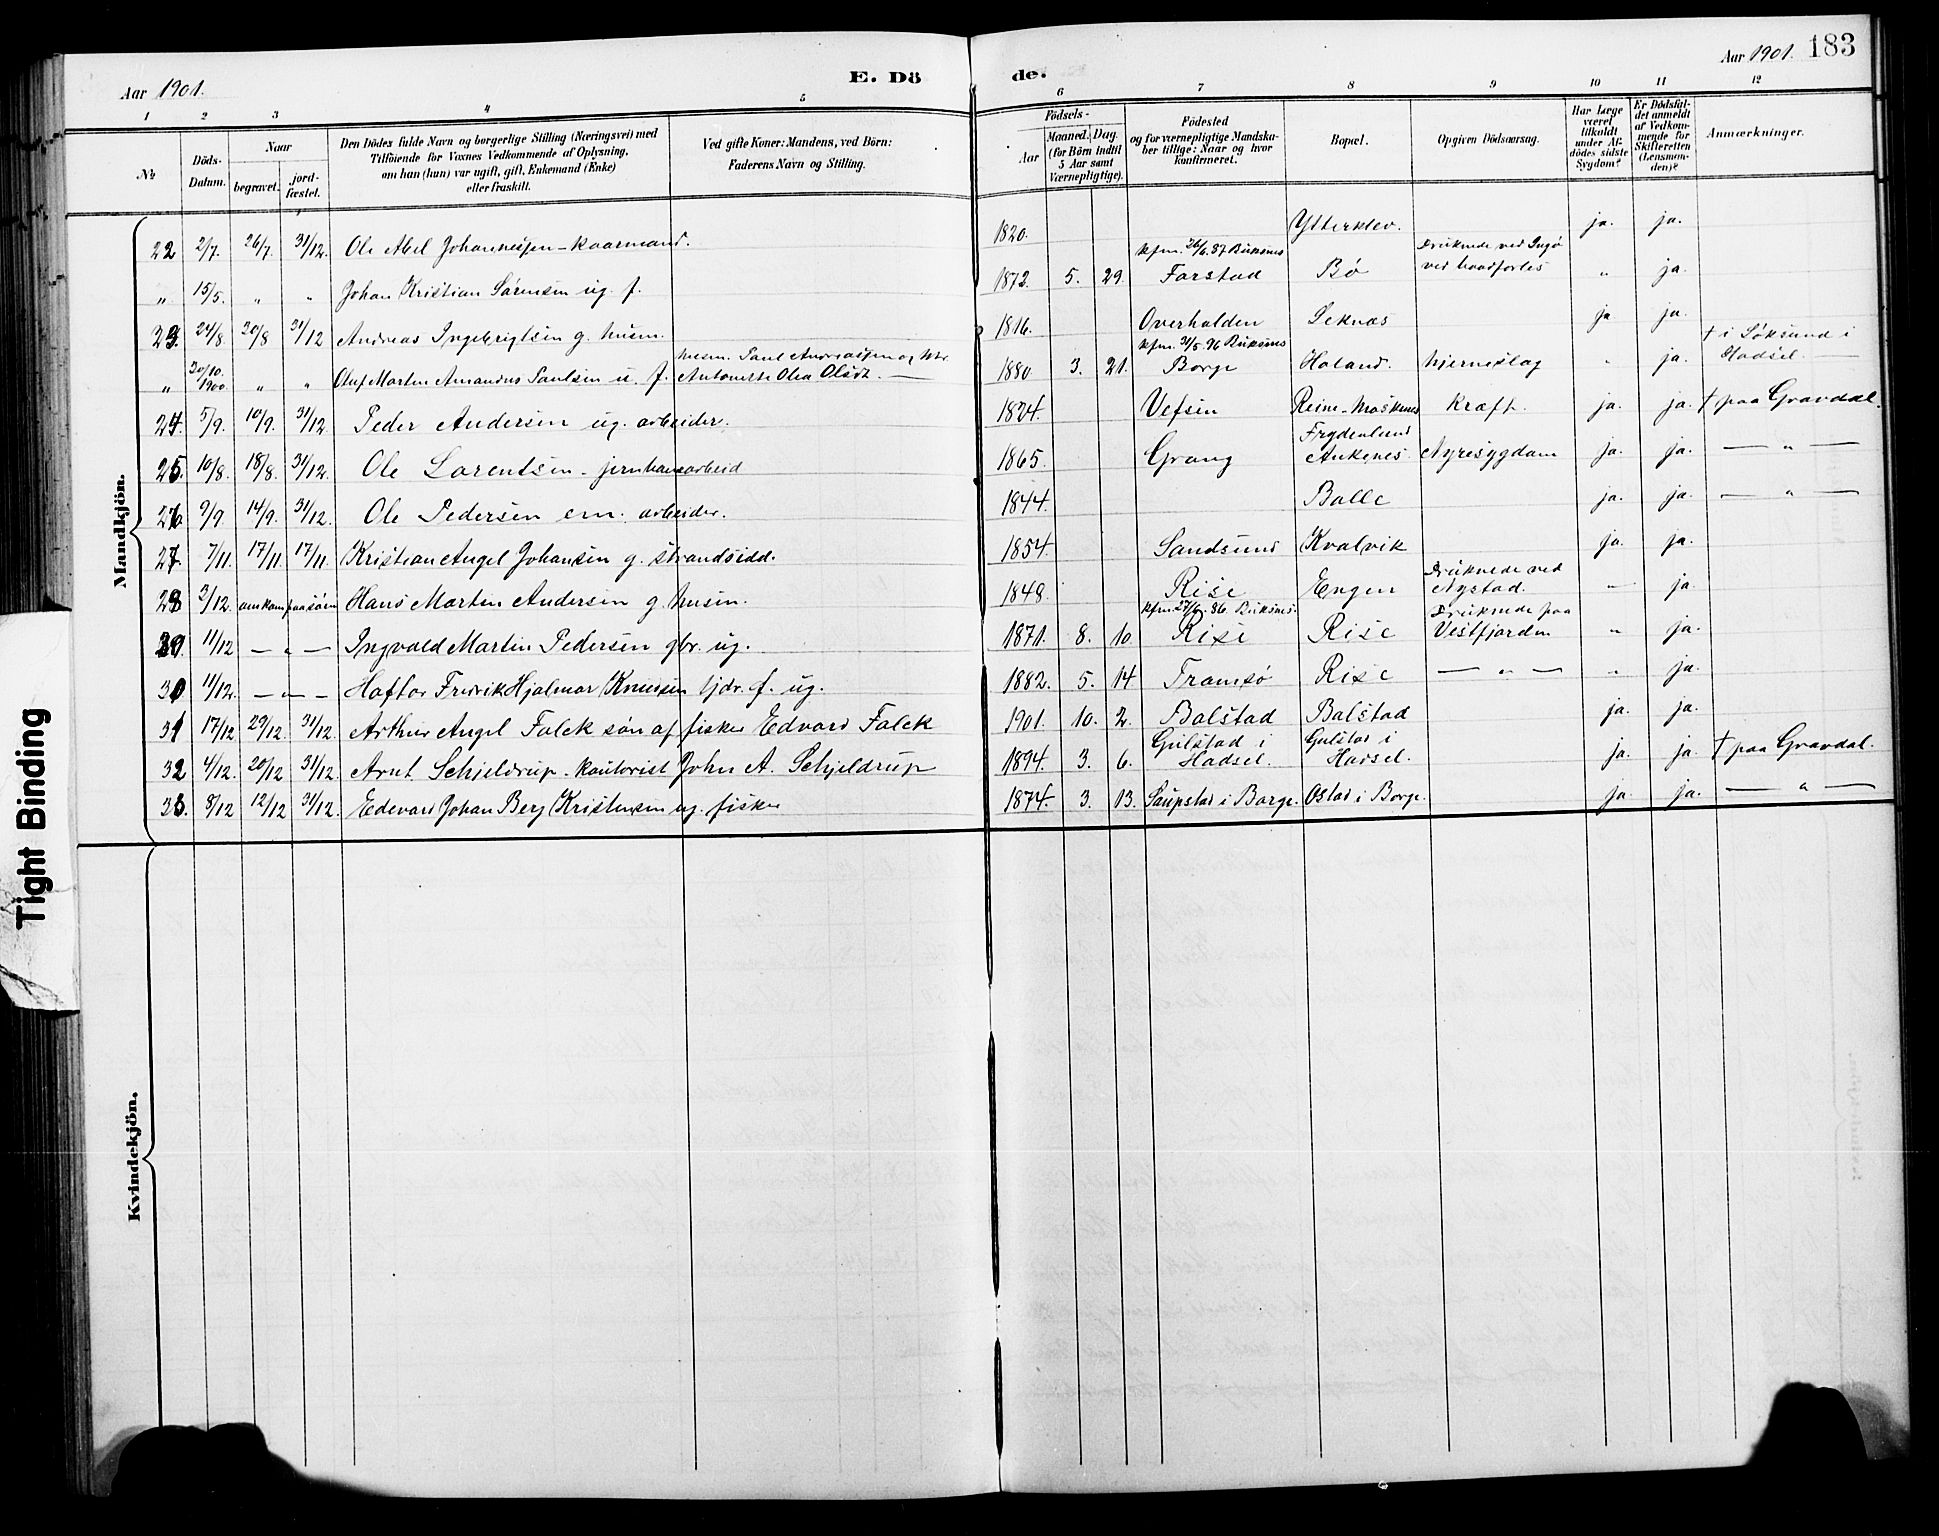 Aar 1901.
E. Dö
de.
Aar 1901. 183
1 2 3 4 5 6 7 8 9 10 11 12
№
Döds-
Datum.
Naar
begravet.
jord-
fæstet.
Den Dödes fulde Navn og borgerlige Stilling (Næringsvei) med
Tilföiende for Voxnes Vedkommende af Oplysning,
om han (hun) var ugift, gift, Enkemand (Enke)
eller fraskilt.
Ved gifte Koner: Mandens, ved Börn:
Faderens Navn og Stilling.
Födsels-
Aar
Maaned. Dag.
(for Börn indtil
5 Aar samt
Værnepligtige).
Födested
og for værnepligtige Mandska-
ber tillige: Naar og hvor
konfirmeret.
Bopæl.
Opgiven Dödsaarsag.
Har Læge
været
tilkaldt
under Af-
dödes sidste
Sygdom?
Er Dödsfal-
det anmeldt
af Vedkom-
mende for
Skifteretten
(Lensman-
den)?
Anmærkninger.
Mandkjön.
22 2/7. 26/7. 31/12. Ole Abel Johannessen - kaarmand. 1820. Ytterklev. ja. ja.
kfm. 26/6 87 Buksnes Druknede ved Ingö
„ 15/5. „ „ Johan Kristian Sörensen ug. f. 1872. 5. 29. Farstad Bö ved baadforlis „ ja.
23. 24/8. 30/8 31/12 Andreas Ingebrigtsen g. husm. 1816. Overhalden Leknæs ja ja.
kfm. 31/5 96 Buksnes † i Löksund i
„ 30/10 1900. „ „ Oluf Martin Amandus Paulsen u. f. husm. Paul Andreassen og
Antonette Olea Olsdt. 1880 3. 21. Borge Holand. hjerneslag „ ja. Hadsel.
24. 5/9. 10/9. 31/12. Peder Andersen ug. arbeider. 1824. Vefsen Reine-Moskenes Kræft. ja. ja. † paa Gravdal.
Frydenlund
25. 10/8. 18/8. 31/12. Ole Lorentsen - jernbanearbeid 1865. Grong Ankenes Nyresygdom ja. ja. — „ —
26. 9/9. 14/9. 31/12. Ole Pedersen em. arbeider. 1844. Balle ja. ja. — „ —
27. 7/11. 17/11. 17/11. Kristian Angel Johansen g. strandsidd. 1854. Sandsund Kvalvik ja. ja.
Druknede ved
28 3/12. omkom paa söen Hans Martin Andersen g. husm. 1848. Rise Engen Nystad. — ja.
kfm. 27/6. 86. Buksnes. Druknede paa
29. 11/12 — „ — Ingvald Martin Pedersen gbr. ug. 1871. 8. 10. Rise Rise Vestfjorden „ ja.
30 11/12. — „ — Haftor Fredrik Hjalmar Knudsen tjdr. f. ug. 1882. 5. 14 Tromsö Rise — „ — „ ja.
31 17/12 29/12. 31/12. Arthur Angel Falck sön af fisker Edvard Falck 1901. 10. 2. Balstad Balstad ja. ja.
Gulstad i Gulstad i
32 4/12. 20/12 31/12. Arnt Schjeldrup - kontorist John A. Schjeldrup 1894. 3. 6. Hadsel. Hadsel. ja. ja. † paa Gravdal.
33. 8/12 12/12 31/12. Edevard Johan Berg Kristensen ug. fisker 1874. 3. 13. Saupstad i Borge. Ostad i Borge. ja. ja. — „ —
Kvindekjön.
Tight Binding